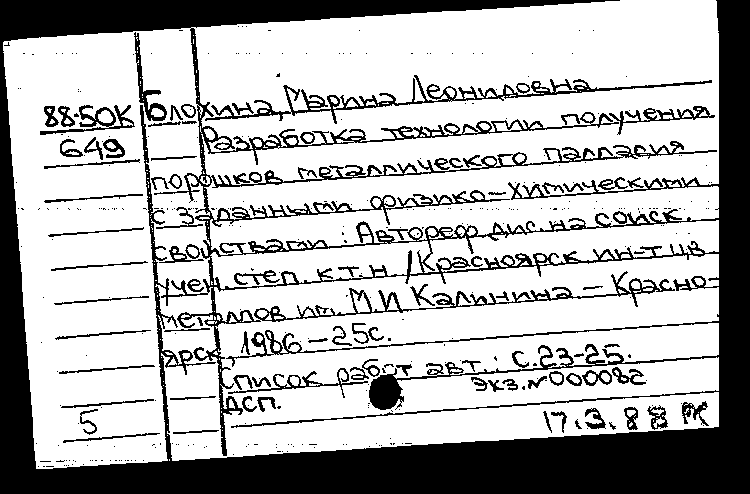 88-50К Блохина, Марина Леонидовна
649 Разработка технологии получения
порошков металлического палладия
с заданными физико-химическими
свойствами : Автореф. дис. на соиск.
учен. степ. к.т.н. /Красноярск. ин-т цв.
металлов им. М.И. Калинина. – Красно-
ярск, 1986 – 25с.
Список работ авт.: с. 23-25.
ДСП. экз. № 000082
5 17.3.88